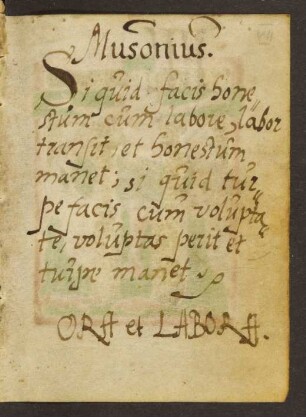 Musonius.
Si quid facis hone¬
stum cum labore, labor
transit, et honestum
manet; si quid tur¬
pe facis cum volupta¬
te, voluptas perit et
turpe manet
ORA et LABORA.